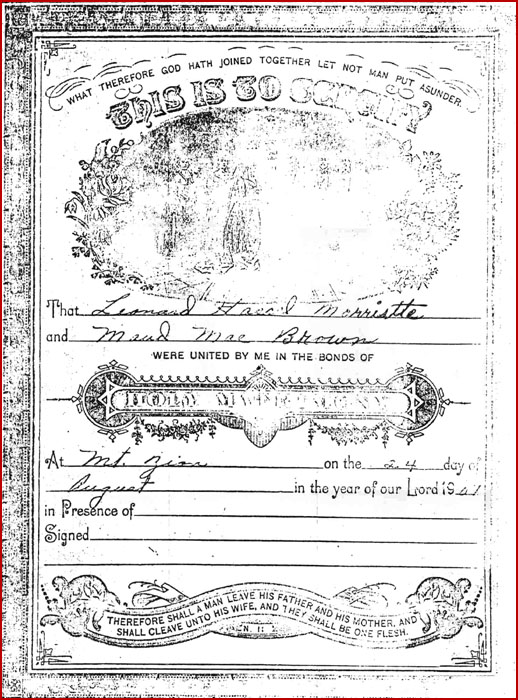 WHAT THEREFORE GOD HATH JOINED TOGETHER LET NOT MAN PUT ASUNDER.
THIS IS TO CERTIFY
That Leonard Morristte
and Maud Mae Brown
WERE UNITED BY ME IN THE BONDS OF
HOLY MATRIMONY
At Mt. Zion on the 24 day of
August in the year of our Lord 19
in Presence of
Signed
THEREFORE SHALL A MAN LEAVE HIS FATHER AND HIS MOTHER, AND
SHALL CLEAVE UNTO HIS WIFE, AND THEY SHALL BE ONE FLESH.